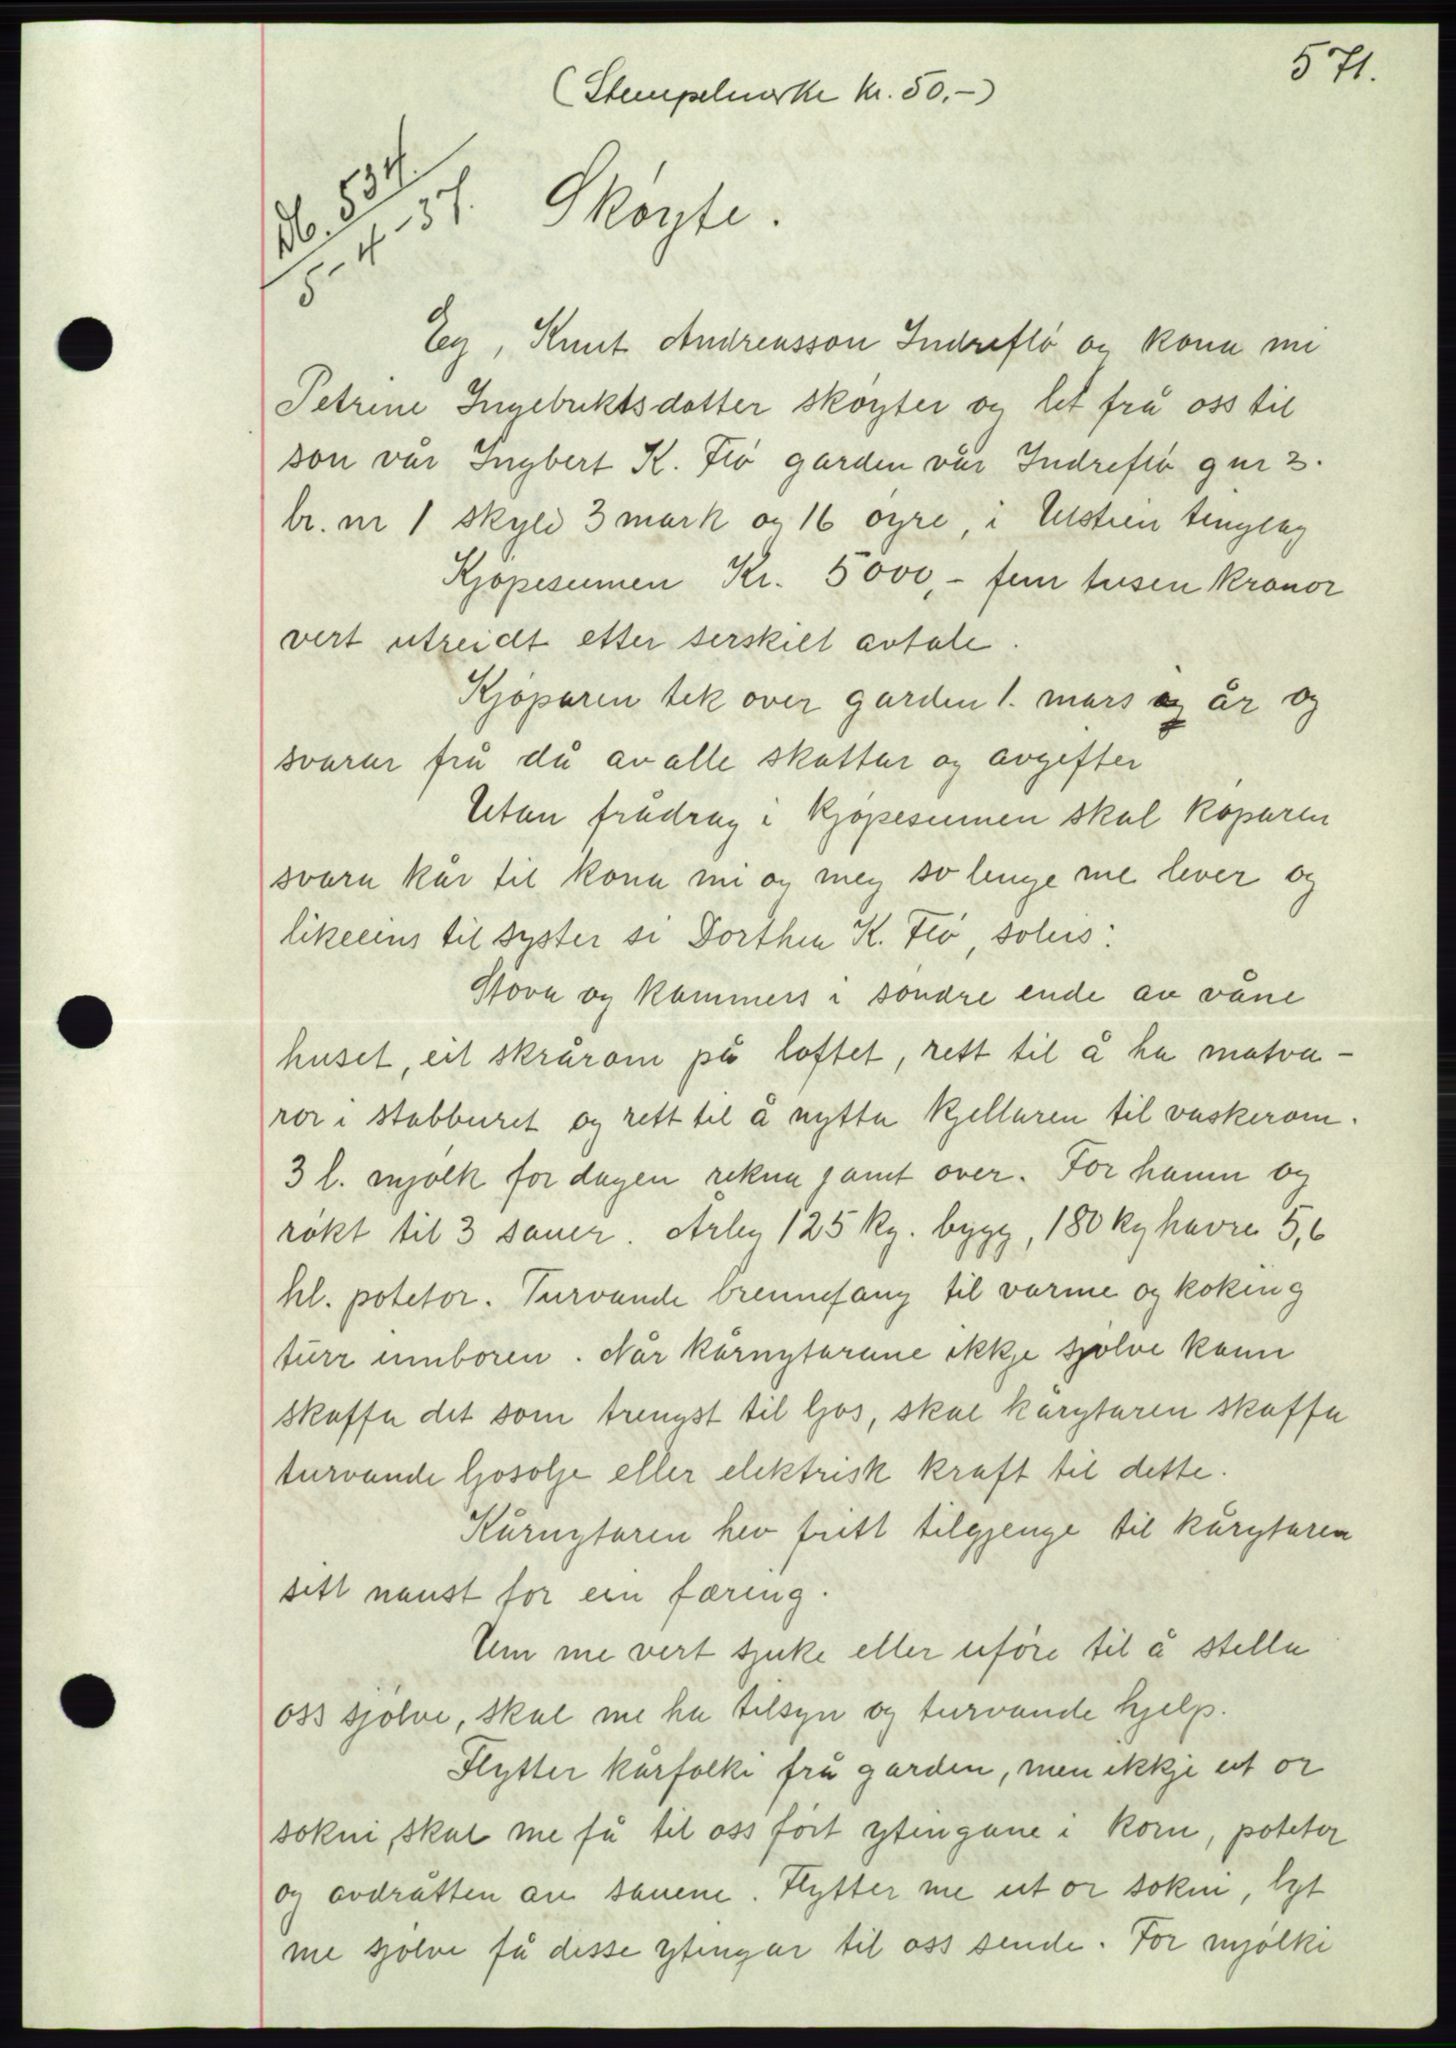 571.
(Stempelmerke kr. 50.-)
Db. 534.
5-4-37.
Skøyte.
Eg, Knut Andreasson Indreflø og kona mi
Petrine Ingebriktsdotter skøyter og let frå oss til
son vår Ingbert K. Flø garden vår Indreflø gnr 3.
br. nr 1 skyld 3 mark og 16 øyre, i Ulstein tinglag
Kjøpesumen Kr. 5000,- fem tusen kronor
vert utreidt etter serskilt avtale.
Kjøparen tek over garden 1. mars i år og
svarar frå då av alle skattar og avgifter
Utan frådrag i kjøpesumen skal køparen
svara kår til kona mi og meg so lenge me lever og
likeeins til syster si Dorthea K. Flø, soleis:
Stova og kammers i søndre ende av våne
huset, eit skrårom på loftet, rett til å ha matva-
ror i stabburet og rett til å nytta kjellaren til vaskerom.
3 l. mjølk for dagen rekna jamt over. For hamn og
røkt til 3 sauer. Årleg 125 kg. bygg, 180 kg havre 5,6
hl. potetor. Turvande brennefang til varme og koking
turr innboren. Når kårnytarane ikkje sjølve kann
skaffa det som trengst til ljos, skal kårytaren skaffa
turvande ljosolje eller elektrisk kraft til dette.
Kårnytaren hev fritt tilgjenge til kårytaren
sitt naust for ein færing.
Um me vert sjuke eller uføre til å stella
oss sjølve, skal me ha tilsyn og turvande hjelp.
Flytter kårfolki frå garden, men ikkje ut or
sokni, skal me få til oss ført ytingane i korn, potetor
og avdråtten av sauene. Flytter me ut or sokni, lyt
me sjølve få disse ytingar til oss sende. For mjølki